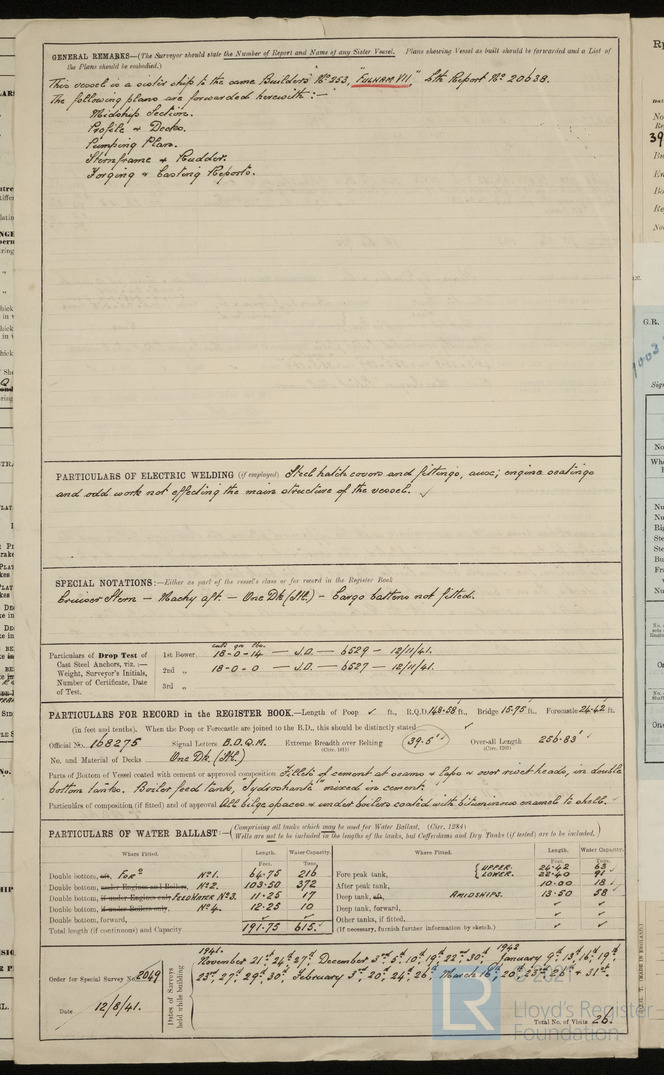 GENERAL REMARKS—(The Surveyor should state the Number of Report and Name of any Sister Vessel. Plans showing Vessel as built should be forwarded and a List of
the Plans should be embodied.)
This vessel is a sister ship to the same Builders' No. 353, "FULHAM VII," Lth. Report No. 20638.
The following plans are forwarded herewith:—
Midship Section.
Profile & Decks.
Pumping Plan.
Sternframe & Rudder.
Forging & Casting Reports.
PARTICULARS OF ELECTRIC WELDING (if employed) Steel hatch covers and fittings, aux; engine seatings
and odd work not effecting the main structure of the vessel. ✓
SPECIAL NOTATIONS:—Either as part of the vessel's class or for record in the Register Book
Cruiser Stern — Machy aft. — One Dk (Stl.) — Cargo battens not fitted.
Particulars of Drop Test of
Cast Steel Anchors, viz. :—
Weight, Surveyor's Initials,
Number of Certificate, Date
of Test.
cwts qrs lbs.
1st Bower 18-0-14 — J.D. — 6529 — 12/11/41.
2nd „ 18-0-0 — J.D. — 6527 — 12/11/41.
3rd „
PARTICULARS FOR RECORD in the REGISTER BOOK.—Length of Poop ✓ ft., R.Q.D 148.58 ft., Bridge 15.75 ft., Forecastle 24.42 ft.
(in feet and tenths). When the Poop or Forecastle are joined to the B.D., this should be distinctly stated ✓
Official No. 168275 Signal Letters B.D.Q.M. Extreme Breadth over Belting (Circ. 1611) 39.5' ✓ Over-all Length (Circ. 1703) 256.83'
No. and Material of Decks One Dk. (Stl.)
Parts of Bottom of Vessel coated with cement or approved composition Fillets of cement at seams & laps & over rivet heads, in double
bottom tanks. Boiler feed tank, "Hydrophant" mixed in cement.
Particulars of composition (if fitted) and of approval All bilge spaces & under boilers coated with bituminous enamel to shell.
PARTICULARS OF WATER BALLAST:— (Comprising all tanks which may be used for Water Ballast. (Circ. 1284)
Wells are not to be included in the lengths of the tanks, but Cofferdams and Dry Tanks (if tested) are to be included.)
Where Fitted. Length. Water Capacity. Where Fitted. Length. Water Capacity.
Feet. Tons. Feet. Tons.
Double bottom, aft, FORD No.1. 64.75 216
Double bottom, under Engines and Boilers, No.2. 103.50 372
Double bottom, if under Engines only FEED WATER No.3. 11.25 17
Double bottom, if under Boilers only, No.4. 12.25 10
Double bottom, forward, ✓ ✓
Total length (if continuous) and Capacity 191.75 615.
Fore peak tank, UPPER. 24.42 63 ✓
LOWER. 22.40 91
After peak tank, 10.00 18 ✓
Deep tank, aft, AMIDSHIPS. 13.50 58 ✓
Deep tank, forward, ✓ ✓
Other tanks, if fitted, ✓ ✓
(If necessary, furnish further information by sketch.)
Order for Special Survey No. 2049
Date 12/8/41.
Dates of Surveys held while building
1941. November 21st, 24th, 27th, December 3rd, 5th, 10th, 19th, 22nd, 30th, 1942 January 9th, 13th, 16th, 19th
23rd, 27th, 29th, 30th, February 3rd, 20th, 24th, 26th, March 16th, 20th, 23rd, 27th & 31st.
Total No. of Visits 26.
© 2021
LR
Lloyd's Register
Foundation